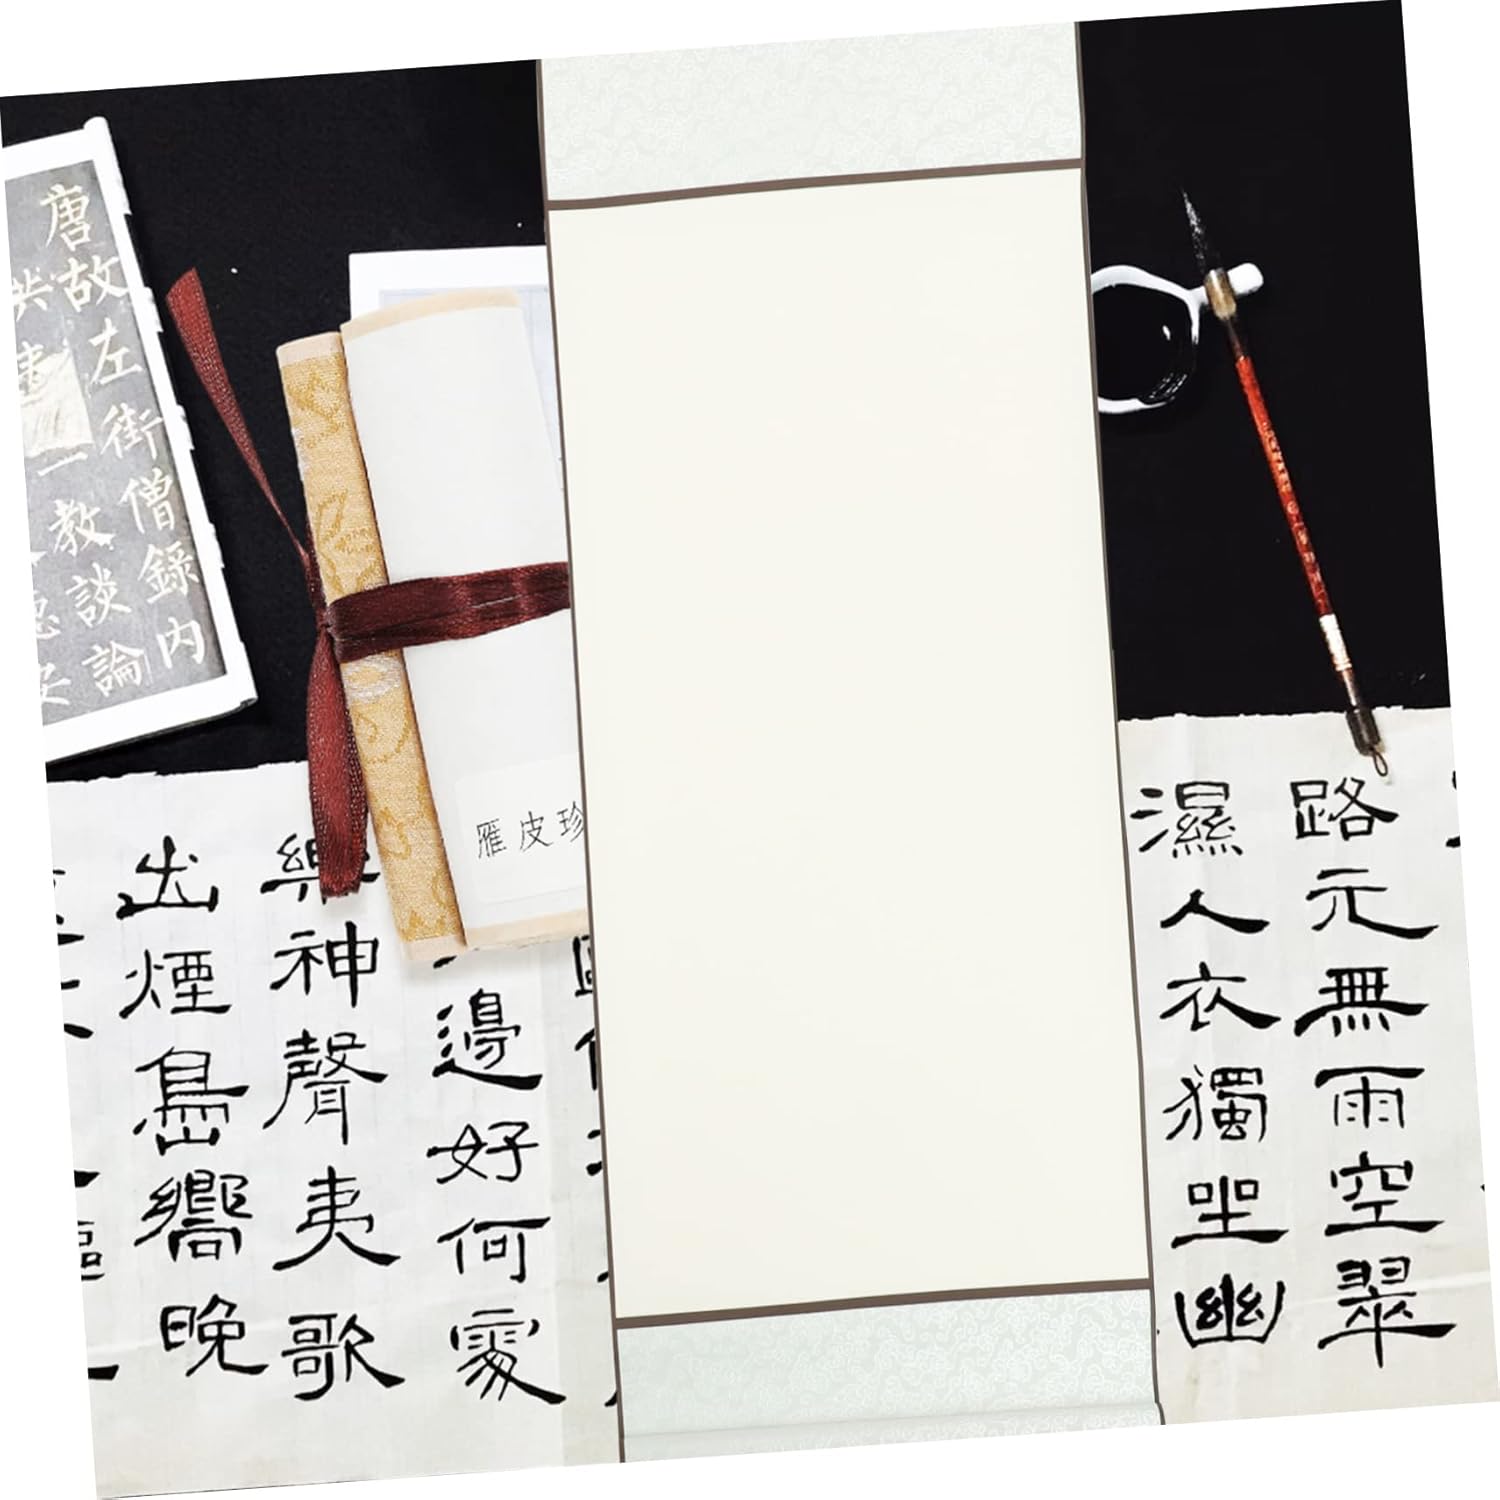 唐故左街僧錄內
教談論
雁皮珍
路元無雨空翠
濕人衣獨坐幽
邊好何處
神聲夷歌
出煙島嚮晚